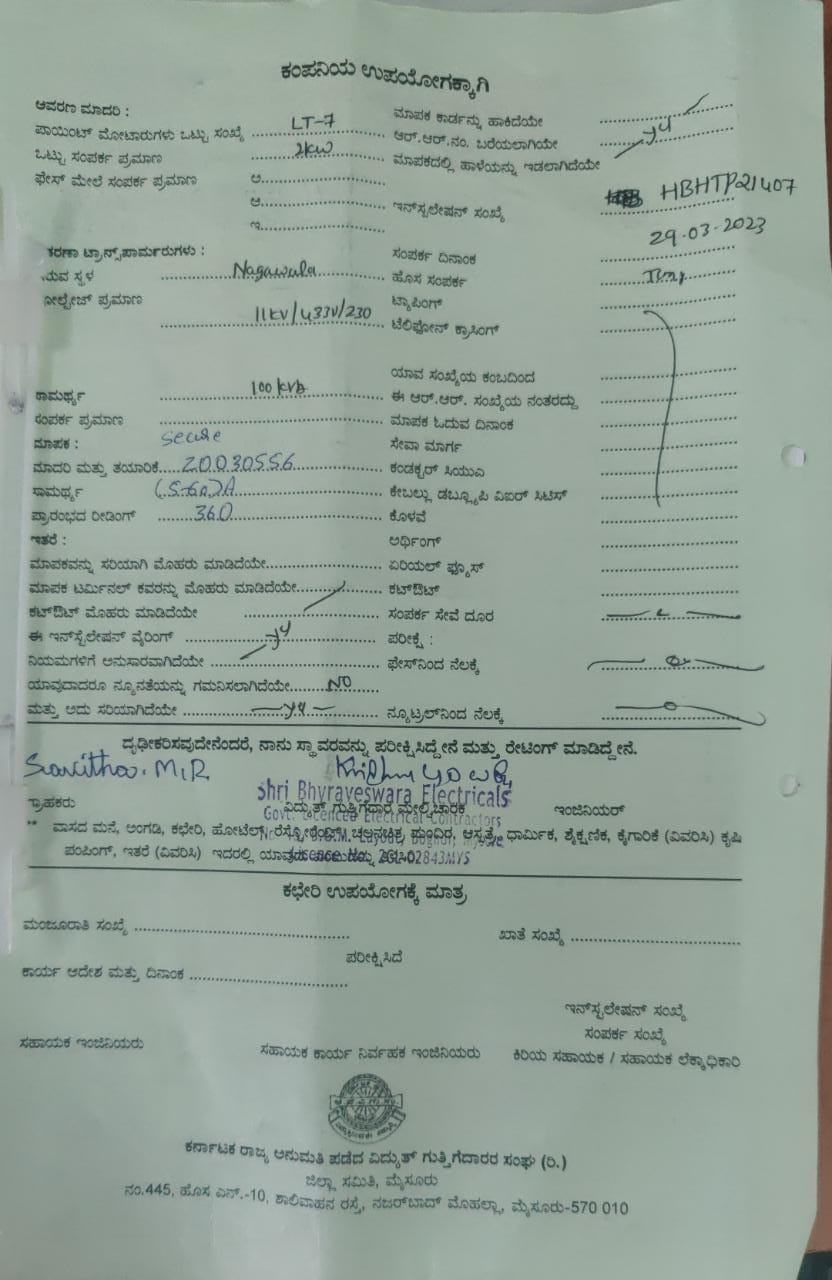 ಕಂಪನಿಯ ಉಪಯೋಗಕ್ಕಾಗಿ
ಆವರಣ ಮಾದರಿ :
ಮಾಪಕ ಕಾರ್ಡನ್ನು ಹಾಕಿದೆಯೇ
ಪಾಯಿಂಟ್ ಮೋಟಾರುಗಳು ಒಟ್ಟು ಸಂಖ್ಯೆ LT-7 ಆರ್.ಆರ್.ನಂ. ಬರೆಯಲಾಗಿಯೇ
ಒಟ್ಟು ಸಂಪರ್ಕ ಪ್ರಮಾಣ 2kw ಮಾಪಕದಲ್ಲಿ ಹಾಳೆಯನ್ನು ಇಡಲಾಗಿದೆಯೇ
ಫೇಸ್ ಮೇಲೆ ಸಂಪರ್ಕ ಪ್ರಮಾಣ ಅ.
ಆ. ಇನ್‌ಸ್ಟಲೇಷನ್ ಸಂಖ್ಯೆ HBHTP21407
ಇ.
ಕರಣಾ ಟ್ರಾನ್ಸ್‌ಪಾರ್ಮರುಗಳು : ಸಂಪರ್ಕ ದಿನಾಂಕ 29-03-2023
ಯವ ಸ್ಥಳ Nagawala ಹೊಸ ಸಂಪರ್ಕ
ೋಲ್ಟೇಜ್ ಪ್ರಮಾಣ 11kv/433v/230 ಟ್ಯಾಪಿಂಗ್
ಟೆಲಿಫೋನ್ ಕ್ರಾಸಿಂಗ್
ಯಾವ ಸಂಖ್ಯೆಯ ಕಂಬದಿಂದ
ಸಾಮರ್ಥ್ಯ 100 kva ಈ ಆರ್.ಆರ್. ಸಂಖ್ಯೆಯ ನಂತರದ್ದು
ಸಂಪರ್ಕ ಪ್ರಮಾಣ ಮಾಪಕ ಓದುವ ದಿನಾಂಕ
ಮಾಪಕ : secure ಸೇವಾ ಮಾರ್ಗ
ಮಾದರಿ ಮತ್ತು ತಯಾರಿಕೆ 20030556 ಕಂಡಕ್ಟರ್ ಸಿಯುಎ
ಸಾಮರ್ಥ್ಯ (5-60)A ಕೇಬಲ್ಲು ಡಬ್ಲ್ಯೂಪಿ ವಿಐರ್ ಸಿಟಿಸ್
ಪ್ರಾರಂಭದ ರೀಡಿಂಗ್ 360 ಕೊಳವೆ
ಇತರೆ : ಅರ್ಥಿಂಗ್
ಮಾಪಕವನ್ನು ಸರಿಯಾಗಿ ಮೊಹರು ಮಾಡಿದೆಯೇ ಏರಿಯಲ್ ಫ್ಯೂಸ್
ಮಾಪಕ ಟರ್ಮಿನಲ್ ಕವರನ್ನು ಮೊಹರು ಮಾಡಿದೆಯೇ ಕಟ್‌ಔಟ್
ಕಟ್‌ಔಟ್ ಮೊಹರು ಮಾಡಿದೆಯೇ ಸಂಪರ್ಕ ಸೇವೆ ದೂರ
ಈ ಇನ್‌ಸ್ಟಲೇಷನ್ ವೈರಿಂಗ್ ಪರೀಕ್ಷೆ :
ನಿಯಮಗಳಿಗೆ ಅನುಸಾರವಾಗಿದೆಯೇ ಫೇಸ್‌ನಿಂದ ನೆಲಕ್ಕೆ
ಯಾವುದಾದರೂ ನ್ಯೂನತೆಯನ್ನು ಗಮನಿಸಲಾಗಿದೆಯೇ NO
ಮತ್ತು ಅದು ಸರಿಯಾಗಿದೆಯೇ ನ್ಯೂಟ್ರಲ್‌ನಿಂದ ನೆಲಕ್ಕೆ
ದೃಢೀಕರಿಸವುದೇನೆಂದರೆ, ನಾನು ಸ್ಥಾವರವನ್ನು ಪರೀಕ್ಷಿಸಿದ್ದೇನೆ ಮತ್ತು ರೇಟಿಂಗ್ ಮಾಡಿದ್ದೇನೆ.
Savitha. M.R
Shri Bhyraveswara Electricals
ಗ್ರಾಹಕರು ವಿದ್ಯುತ್ ಗುತ್ತಿಗೆದಾರ ಮೇಲ್ವಿಚಾರಕ ಇಂಜಿನಿಯರ್
Govt. Licenced Electrical Contractors
** ವಾಸದ ಮನೆ, ಅಂಗಡಿ, ಕಛೇರಿ, ಹೋಟೆಲ್, ರೆಸ್ಟೋರೆಂಟ್, ಚಲನಚಿತ್ರ ಮಂದಿರ, ಆಸ್ಪತ್ರೆ, ಧಾರ್ಮಿಕ, ಶೈಕ್ಷಣಿಕ, ಕೈಗಾರಿಕೆ (ವಿವರಿಸಿ) ಕೃಷಿ
ಪಂಪಿಂಗ್, ಇತರೆ (ವಿವರಿಸಿ) ಇದರಲ್ಲಿ
ಕಛೇರಿ ಉಪಯೋಗಕ್ಕೆ ಮಾತ್ರ
ಮಂಜೂರಾತಿ ಸಂಖ್ಯೆ ಖಾತೆ ಸಂಖ್ಯೆ
ಪರೀಕ್ಷಿಸಿದೆ
ಕಾರ್ಯ ಆದೇಶ ಮತ್ತು ದಿನಾಂಕ
ಇನ್‌ಸ್ಟಲೇಷನ್ ಸಂಖ್ಯೆ
ಸಂಪರ್ಕ ಸಂಖ್ಯೆ
ಸಹಾಯಕ ಇಂಜಿನಿಯರು ಸಹಾಯಕ ಕಾರ್ಯ ನಿರ್ವಹಕ ಇಂಜಿನಿಯರು ಕಿರಿಯ ಸಹಾಯಕ / ಸಹಾಯಕ ಲೆಕ್ಕಾಧಿಕಾರಿ
ಕರ್ನಾಟಕ ರಾಜ್ಯ ಅನುಮತಿ ಪಡೆದ ವಿದ್ಯುತ್ ಗುತ್ತಿಗೆದಾರರ ಸಂಘ (ರಿ.)
ಜಿಲ್ಲಾ ಸಮಿತಿ, ಮೈಸೂರು
ನಂ.445, ಹೊಸ ಎನ್.-10, ಶಾಲಿವಾಹನ ರಸ್ತೆ, ನಜರ್‌ಬಾದ್ ಮೊಹಲ್ಲಾ, ಮೈಸೂರು-570 010